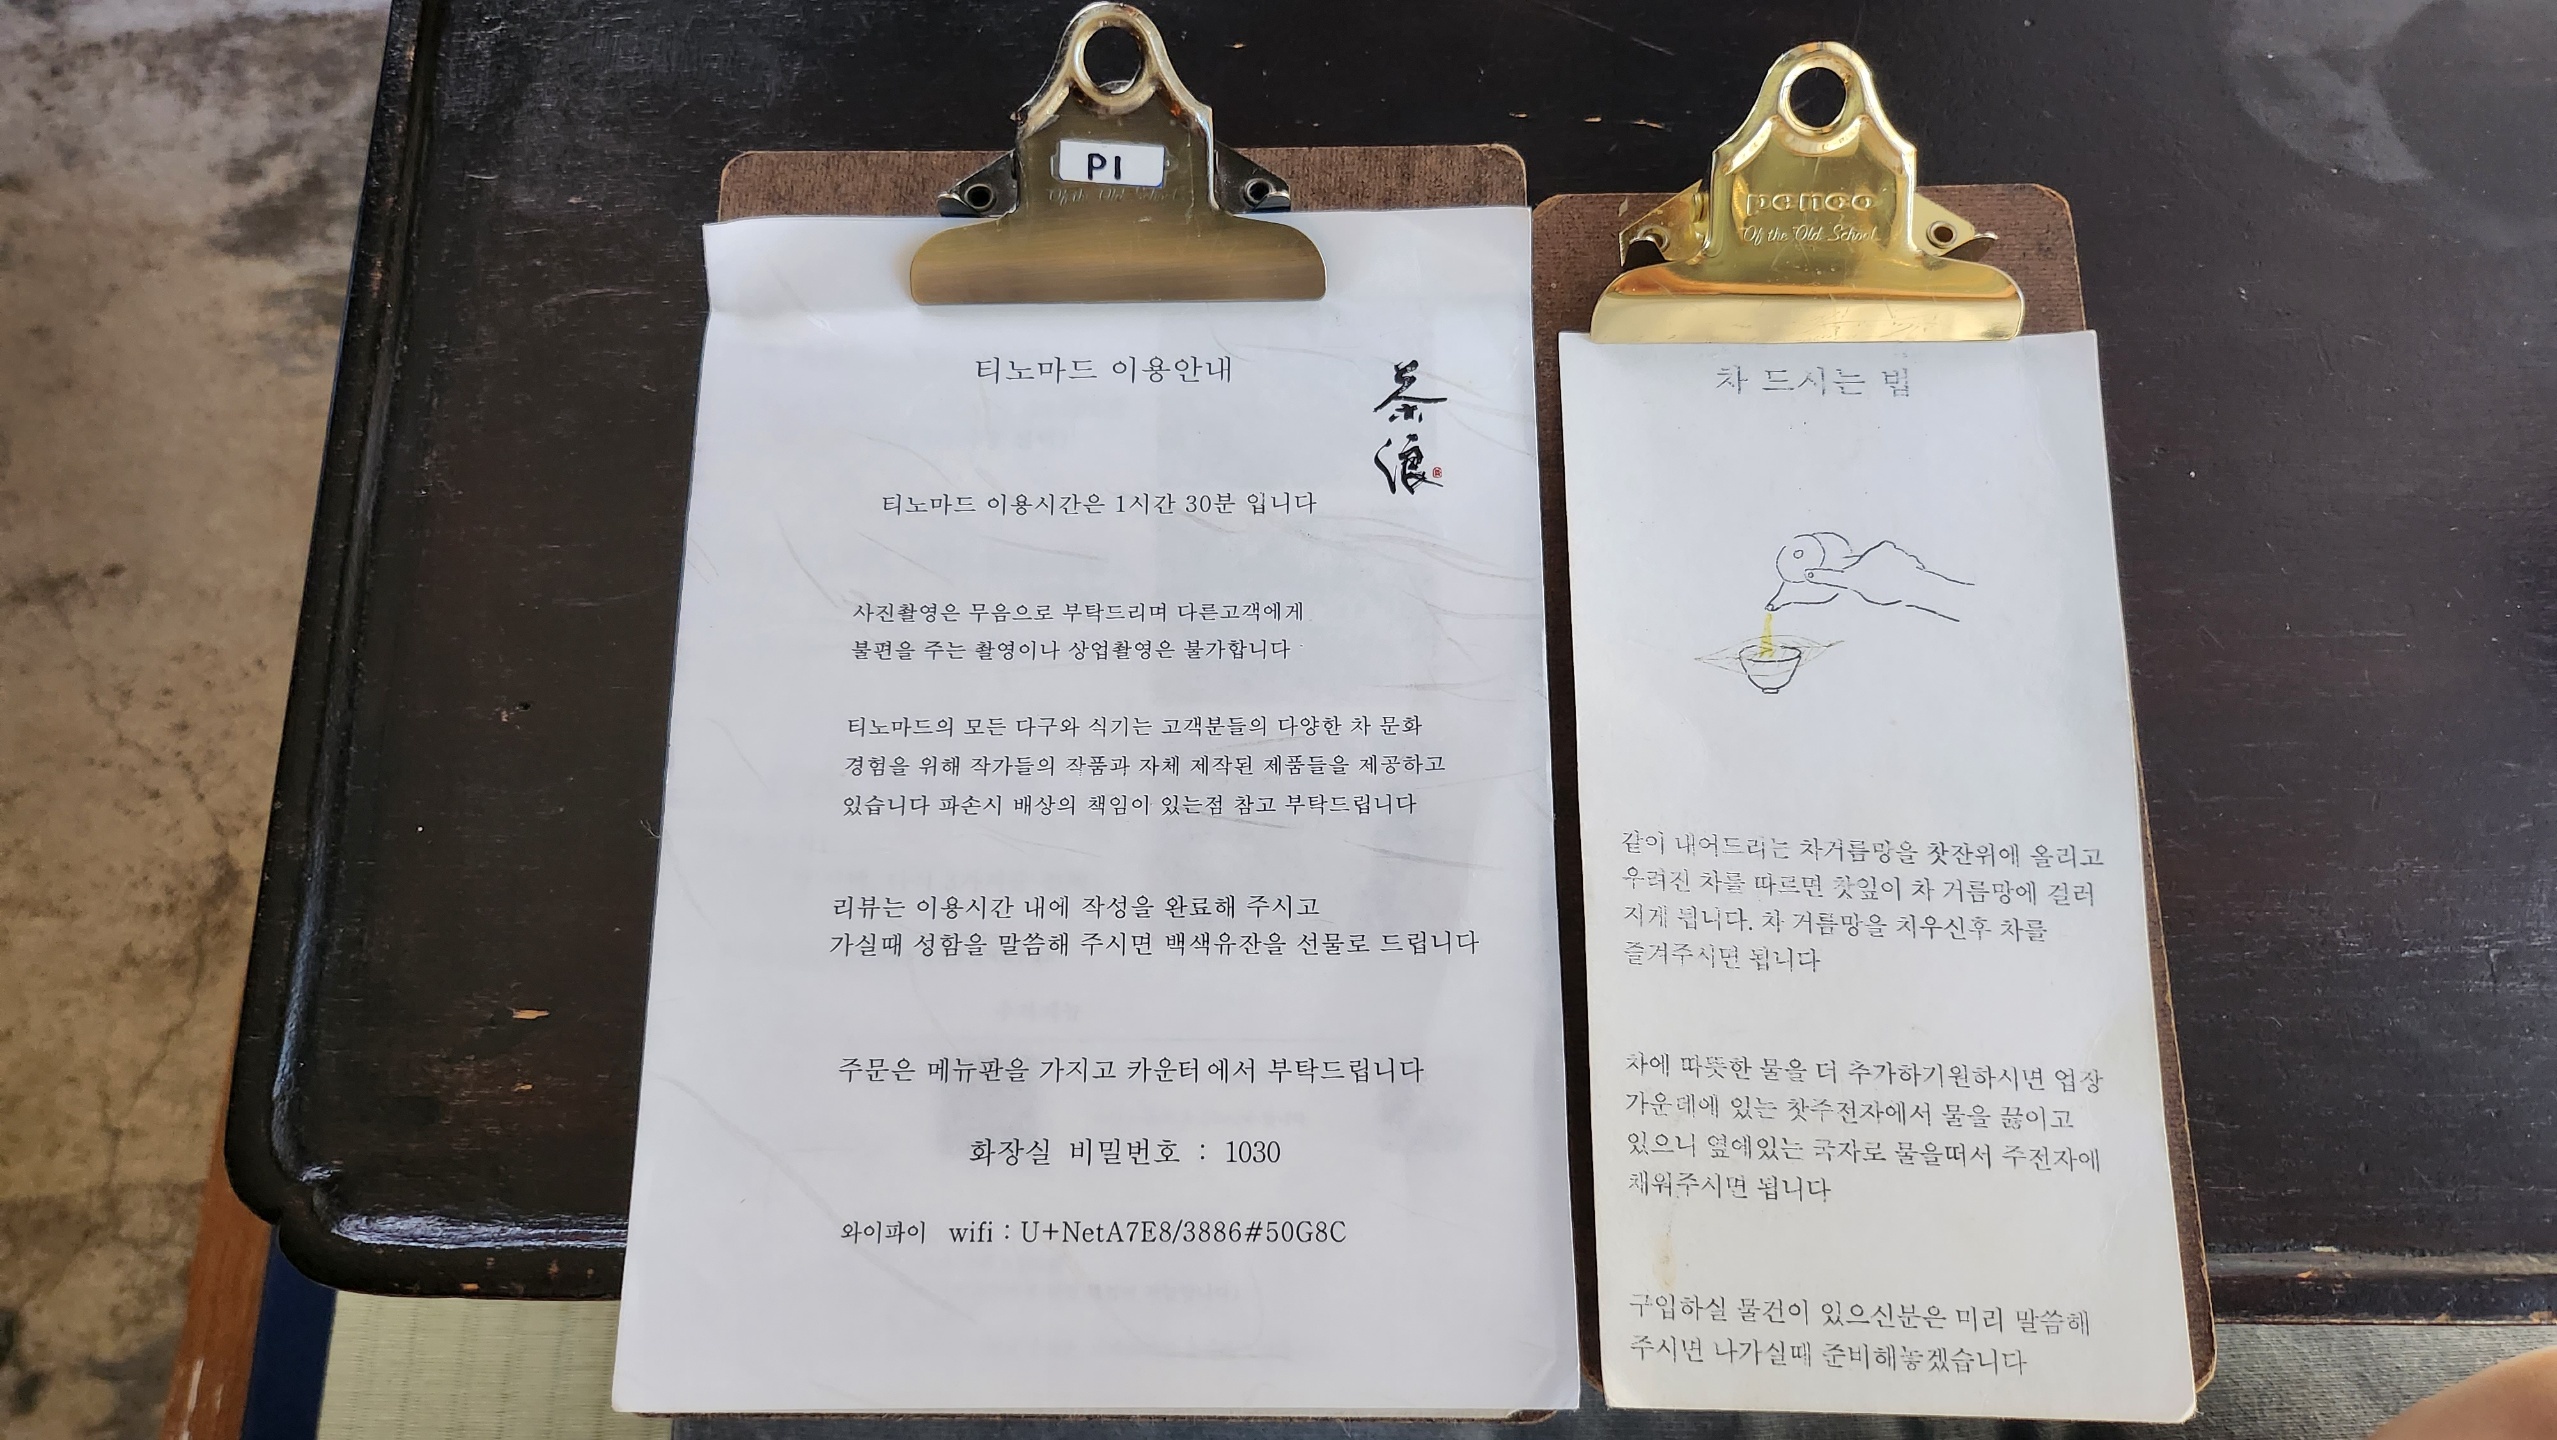 P1
Of the Old School
티노마드 이용안내
茶
浪
티노마드 이용시간은 1시간 30분 입니다
사진촬영은 무음으로 부탁드리며 다른고객에게
불편을 주는 촬영이나 상업촬영은 불가합니다
티노마드의 모든 다구와 식기는 고객분들의 다양한 차 문화
경험을 위해 작가들의 작품과 자체 제작된 제품들을 제공하고
있습니다 파손시 배상의 책임이 있는점 참고 부탁드립니다
리뷰는 이용시간 내에 작성을 완료해 주시고
가실때 성함을 말씀해 주시면 백색유잔을 선물로 드립니다
주문은 메뉴판을 가지고 카운터에서 부탁드립니다
화장실 비밀번호 : 1030
와이파이 wifi : U+NetA7E8/3886#50G8C
penco
Of the Old School
차 드시는 법
같이 내어드리는 차거름망을 찻잔위에 올리고
우려진 차를 따르면 찻잎이 차 거름망에 걸러
지게 됩니다. 차 거름망을 치우신후 차를
즐겨주시면 됩니다
차에 따뜻한 물을 더 추가하기원하시면 업장
가운데에 있는 찻주전자에서 물을 끓이고
있으니 옆에있는 국자로 물을떠서 주전자에
채워주시면 됩니다
구입하실 물건이 있으신분은 미리 말씀해
주시면 나가실때 준비해놓겠습니다